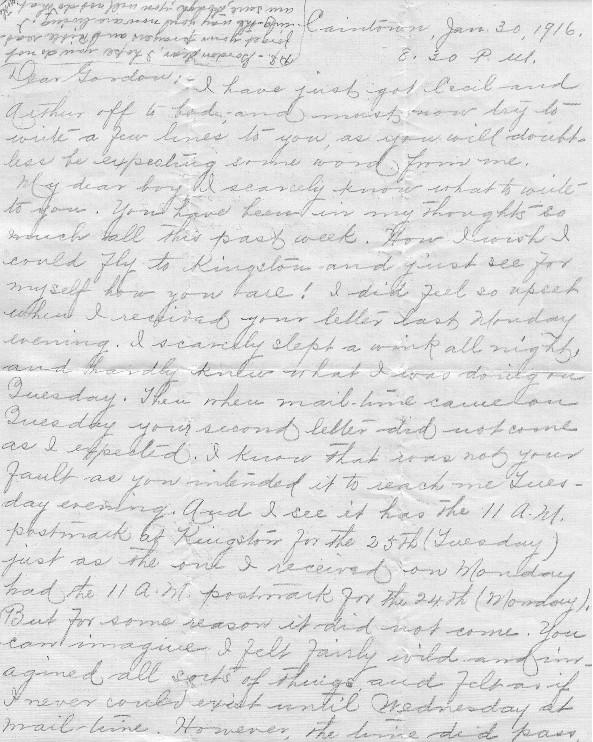 Caintown, Jan. 30, 1916.
8.30 P.M.
Dear Gordon:- I have just got Cecil and
Arthur off to bed, and must now try to
write a few lines to you, as you will doubt-
less be expecting some word from me.
My dear boy I scarcely know what to write
to you. You have been in my thoughts so
much all this past week. How I wish I
could fly to Kingston and just see for
myself how you are! I did feel so upset
when I received your letter last Monday
evening. I scarcely slept a wink all night,
and hardly knew what I was doing on
Tuesday. Then when mail-time came on
Tuesday your second letter did not come
as I expected. I know that was not your
fault as you intended it to reach me Tues-
day evening. And I see it has the 11 A.M.
postmark at Kingston for the 25th (Tuesday)
just as the one I received on Monday
had the 11 A.M. postmark for the 24th (Monday).
But for some reason it did not come. You
can imagine I felt fairly wild and im-
agined all sorts of things, and felt as if
I never could exist until Wednesday at
mail-time. However, the time did pass,
P.S. - Gordon dear, I hope you do not
forget your prayers and Bible read-
ing the way you are now living. I
am sure